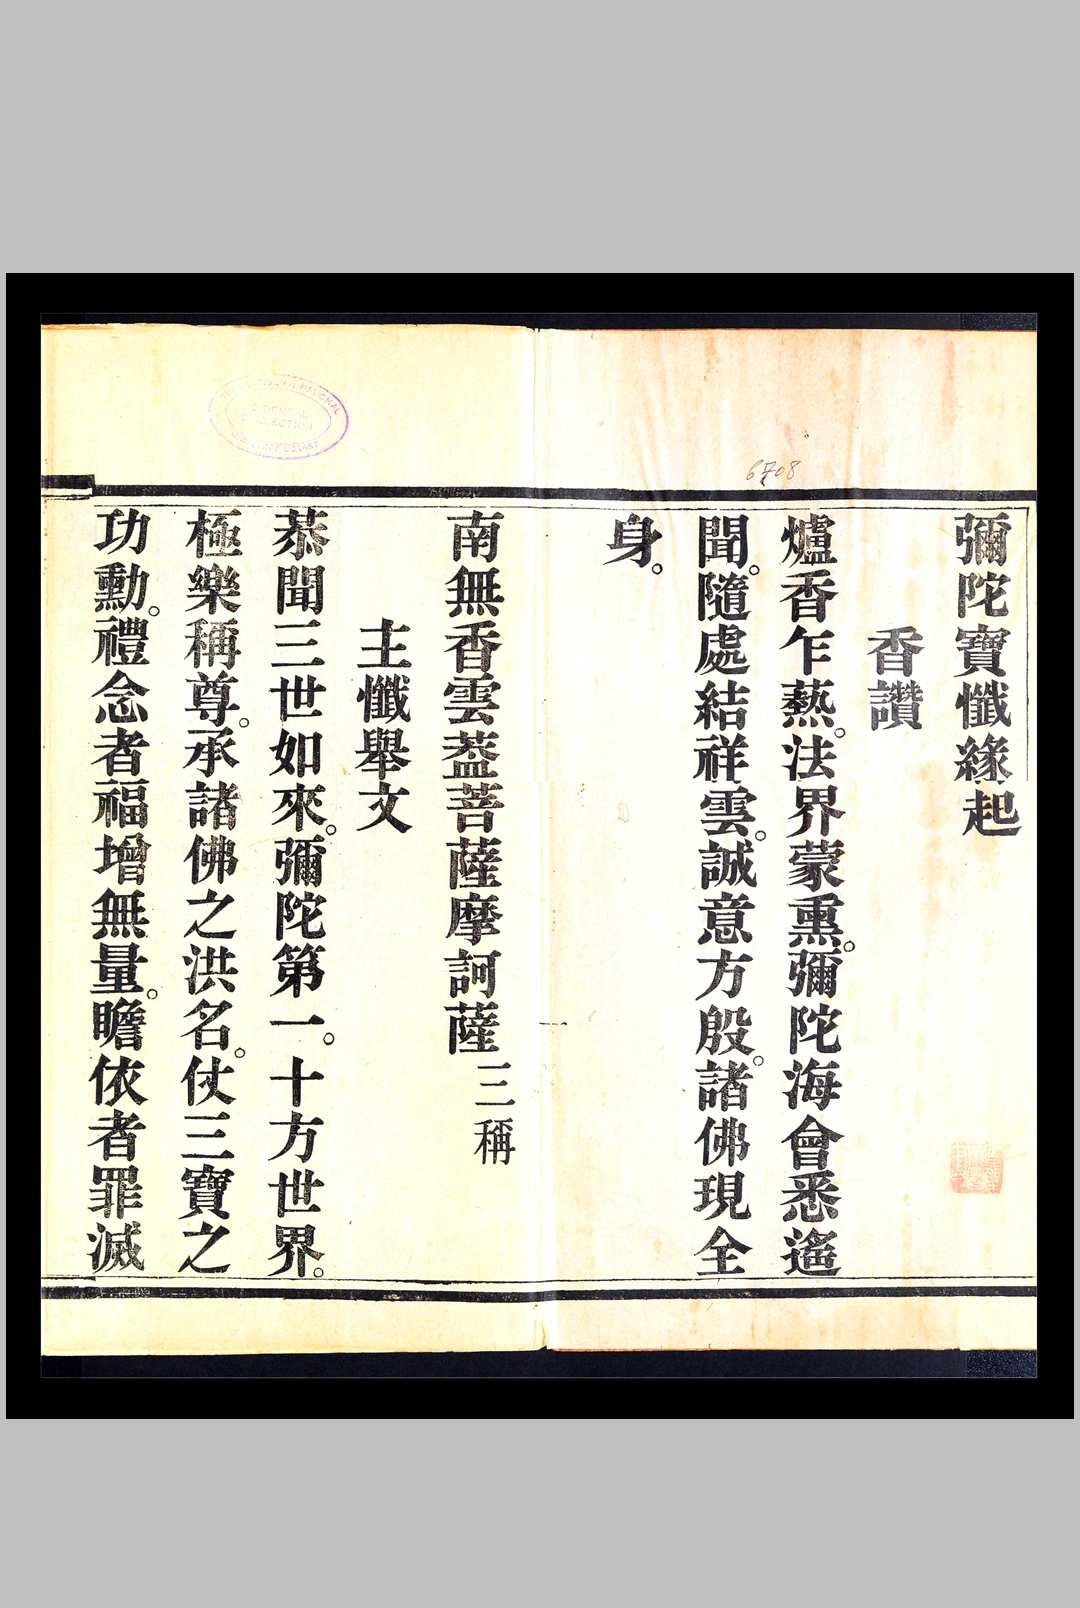 彌陀寶懺緣起
香讚
爐香乍爇。法界蒙熏。彌陀海會悉遙
聞。隨處結祥雲。誠意方殷。諸佛現全
身。
南無香雲葢菩薩摩訶薩三稱
主懺舉文
恭聞三世如來。彌陀第一。十方世界。
極樂稱尊。承諸佛之洪名。仗三寶之
功勳。禮念者福增無量。瞻依者罪滅
6708